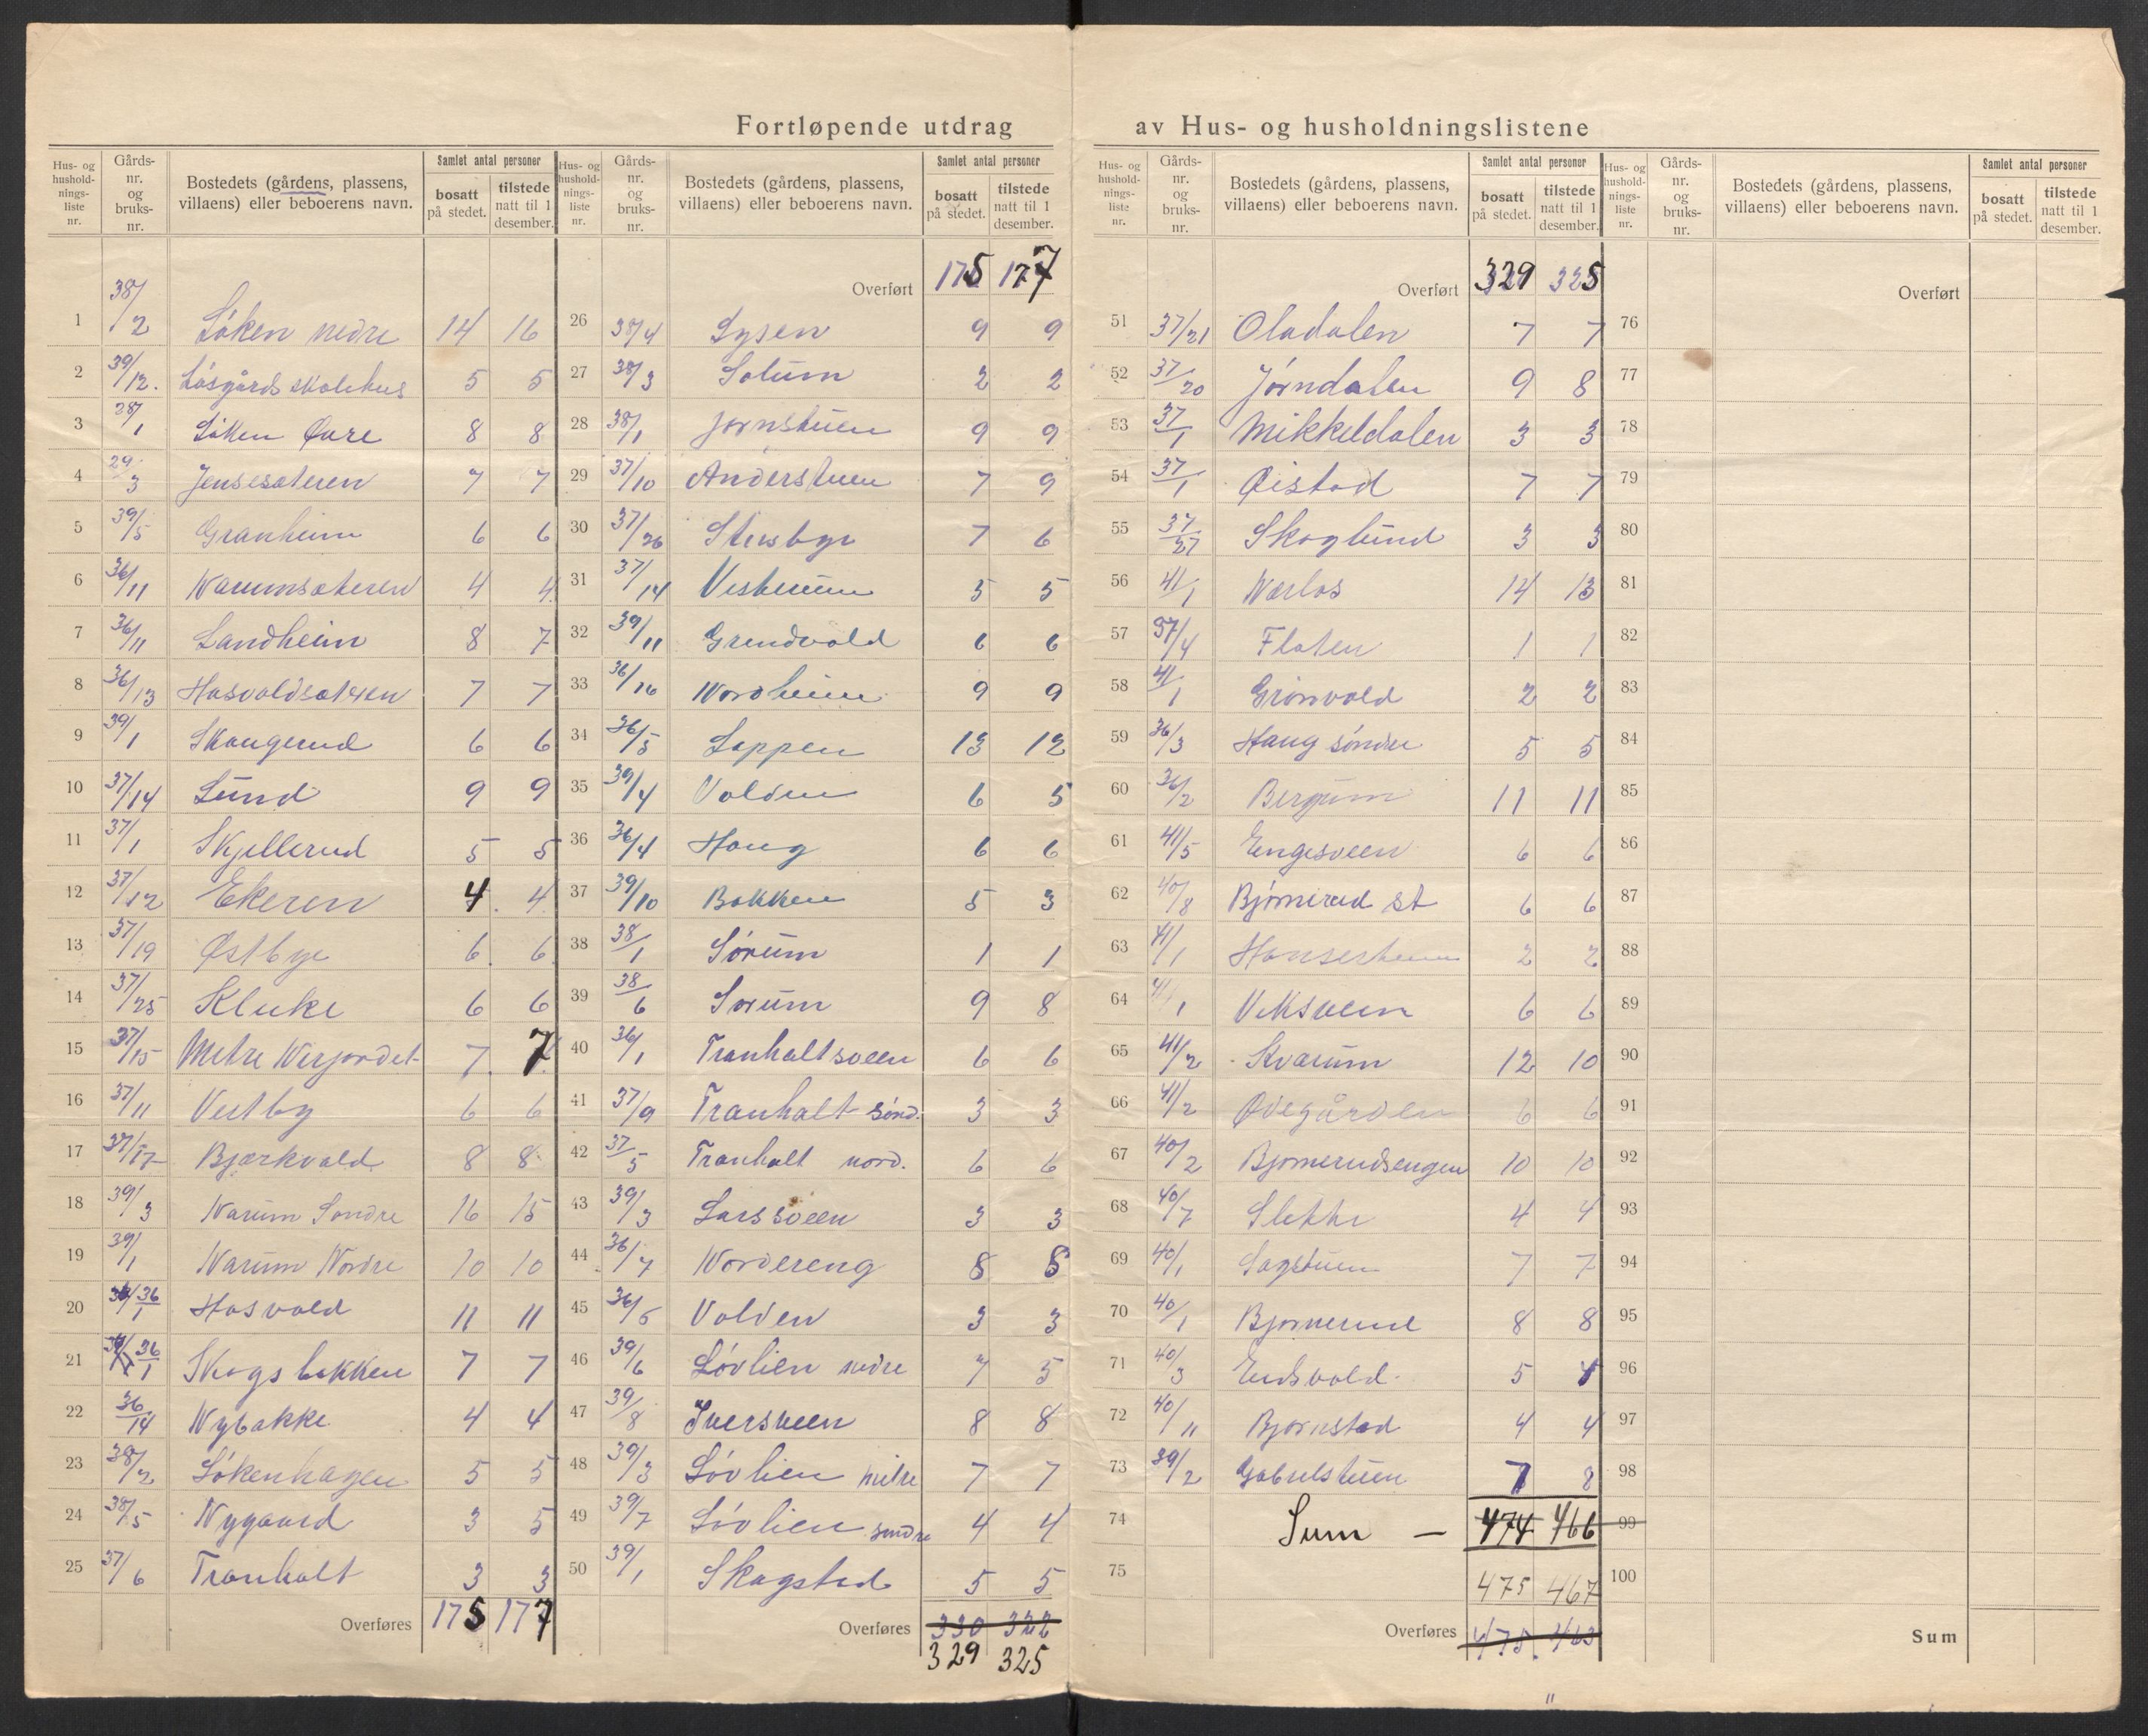 Fortløpende utdrag av Hus- og husholdningslistene
Hus- og husholdnings-liste nr. Gårds-nr. og bruks-nr. Bostedets (gårdens, plassens, villaens) eller beboerens navn. Samlet antal personer bosatt på stedet. tilstede natt til 1 desember.
1 38/2 Løken nedre 14 16
2 39/12. Løsgårds skolehus 5 5
3 28/1 Løken Øvre 8 8
4 29/3 Jensesæteren 7 7
5 39/5 Granheim 6 6
6 36/11 Narumsæteren 4 4
7 36/11 Landheim 8 7
8 36/13 Hasvoldsæteren 7 7
9 39/1 Skaugerud 6 6
10 37/14 Lund 9 9
11 37/1 Skjellerud 5 5
12 37/12 Ekeren 4 4
13 37/19 Østbye 6 6
14 37/25 Kluke 6 6
15 37/15 Metre Verjordet 7 7
16 37/11 Vestby 6 6
17 37/17 Bjærkvold 8 8
18 39/3 Narum Søndre 16 15
19 39/1 Narum Nordre 10 10
20 36/1 Hasvold 11 11
21 36/1 Skogsbakken 7 7
22 36/14 Nybakke 4 4
23 38/2 Løkenhagen 5 5
24 38/5 Nygaard 3 5
25 37/6 Tranholt 3 3
Overføres 175 177
Hus- og husholdnings-liste nr. Gårds-nr. og bruks-nr. Bostedets (gårdens, plassens, villaens) eller beboerens navn. Samlet antal personer bosatt på stedet. tilstede natt til 1 desember.
Overført 175 177
26 38/4 Lysen 9 9
27 38/3 Solum 2 2
28 38/1 Jørnstuen 9 9
29 37/10 Anderstuen 7 9
30 37/26 Stensbye 7 6
31 37/14 Vestheim 5 5
32 39/11 Grundvold 6 6
33 36/16 Nordheim 9 9
34 36/5 Lappen 13 12
35 39/4 Volden 6 5
36 36/4 Haug 6 6
37 39/10 Bakken 5 3
38 38/1 Sørum 1 1
39 38/6 Sørum 9 8
40 36/1 Tranholtsveen 6 6
41 37/9 Tranholt sønd. 3 3
42 37/5 Tranholt nord. 6 6
43 39/3 Larssveen 3 3
44 36/7 Nordereng 8 8
45 36/6 Volden 3 3
46 39/6 Løvlien nedre 7 5
47 39/8 Iversveen 8 8
48 39/3 Løvlien mitre 7 7
49 39/7 Løvlien søndre 4 4
50 39/1 Skogstad 5 5
Overføres 330 322
329 325
Hus- og husholdnings-liste nr. Gårds-nr. og bruks-nr. Bostedets (gårdens, plassens, villaens) eller beboerens navn. Samlet antal personer bosatt på stedet. tilstede natt til 1 desember.
Overført 329 325
51 37/21 Oladalen 7 7
52 37/20 Jørndalen 9 8
53 37/1 Mikkeldalen 3 3
54 37/1 Øistad 7 7
55 37/27 Skoglund 3 3
56 41/1 Nærlos 14 13
57 37/4 Floten 1 1
58 41/1 Grønvold 2 2
59 36/3 Haug søndre 5 5
60 36/2 Bergum 11 11
61 41/5 Engesveen 6 6
62 40/8 Bjørnerud st 6 6
63 41/1 Hansestuen 2 2
64 41/1 Viksveen 6 6
65 41/2 Kvarum 12 10
66 41/2 Ødegården 6 6
67 40/2 Bjørnerudsengen 10 10
68 40/7 Slette 4 4
69 40/1 Sagstuen 7 7
70 40/1 Bjørnerud 8 8
71 40/3 Eidsvold 5 4
72 40/11 Bjørnstad 4 4
73 39/2 Gabrielstuen 7 8
74 Sum — 474 466
75 475 467
Overføres 475. 463
Hus- og husholdnings-liste nr. Gårds-nr. og bruks-nr. Bostedets (gårdens, plassens, villaens) eller beboerens navn. Samlet antal personer bosatt på stedet. tilstede natt til 1 desember.
Overført
76
77
78
79
80
81
82
83
84
85
86
87
88
89
90
91
92
93
94
95
96
97
98
99
100
Sum